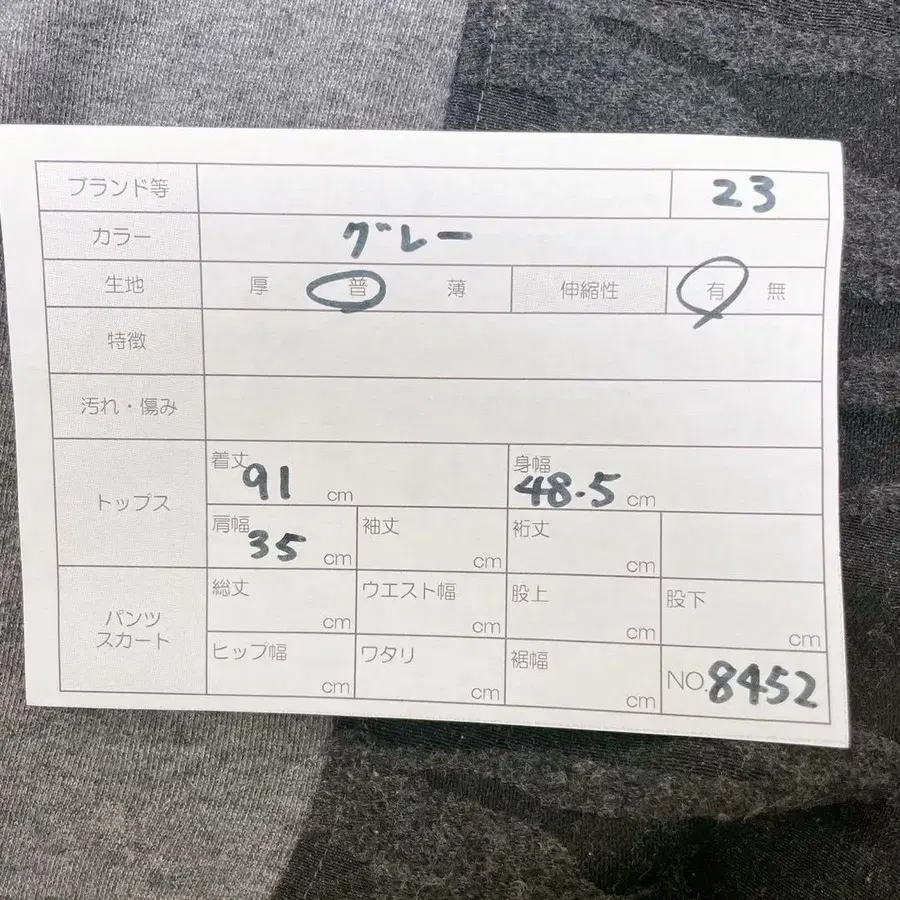 ブランド等 23
カラー グレー
生地 厚 普 薄 伸縮性 有 無
特徴
汚れ・傷み
トップス
着丈 91 cm 身幅 48.5 cm
肩幅 35 cm 袖丈 cm 裄丈 cm
パンツ
スカート
総丈 cm ウエスト幅 cm 股上 cm 股下 cm
ヒップ幅 cm ワタリ cm 裾幅 cm NO. 8452